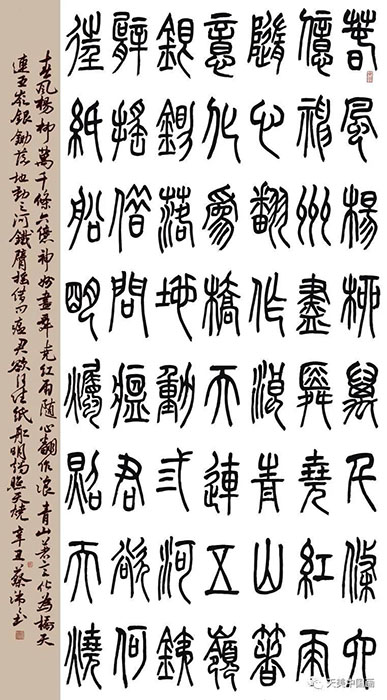 春風楊柳萬千條六
億神州盡舜堯紅雨
隨心翻作浪青山著
意化為橋天連五嶺
銀鋤落地動弎河鐵
臂搖借問瘟君欲何
往紙船明燭照天燒
春风楊柳萬千條六億神州盡舜堯红雨随心翻作浪青山着意化為橋天
連五嶺银鋤落地動三河鐵臂摇借问瘟君欲何往纸船明燭照天燒 辛丑 蔡
天美中国画